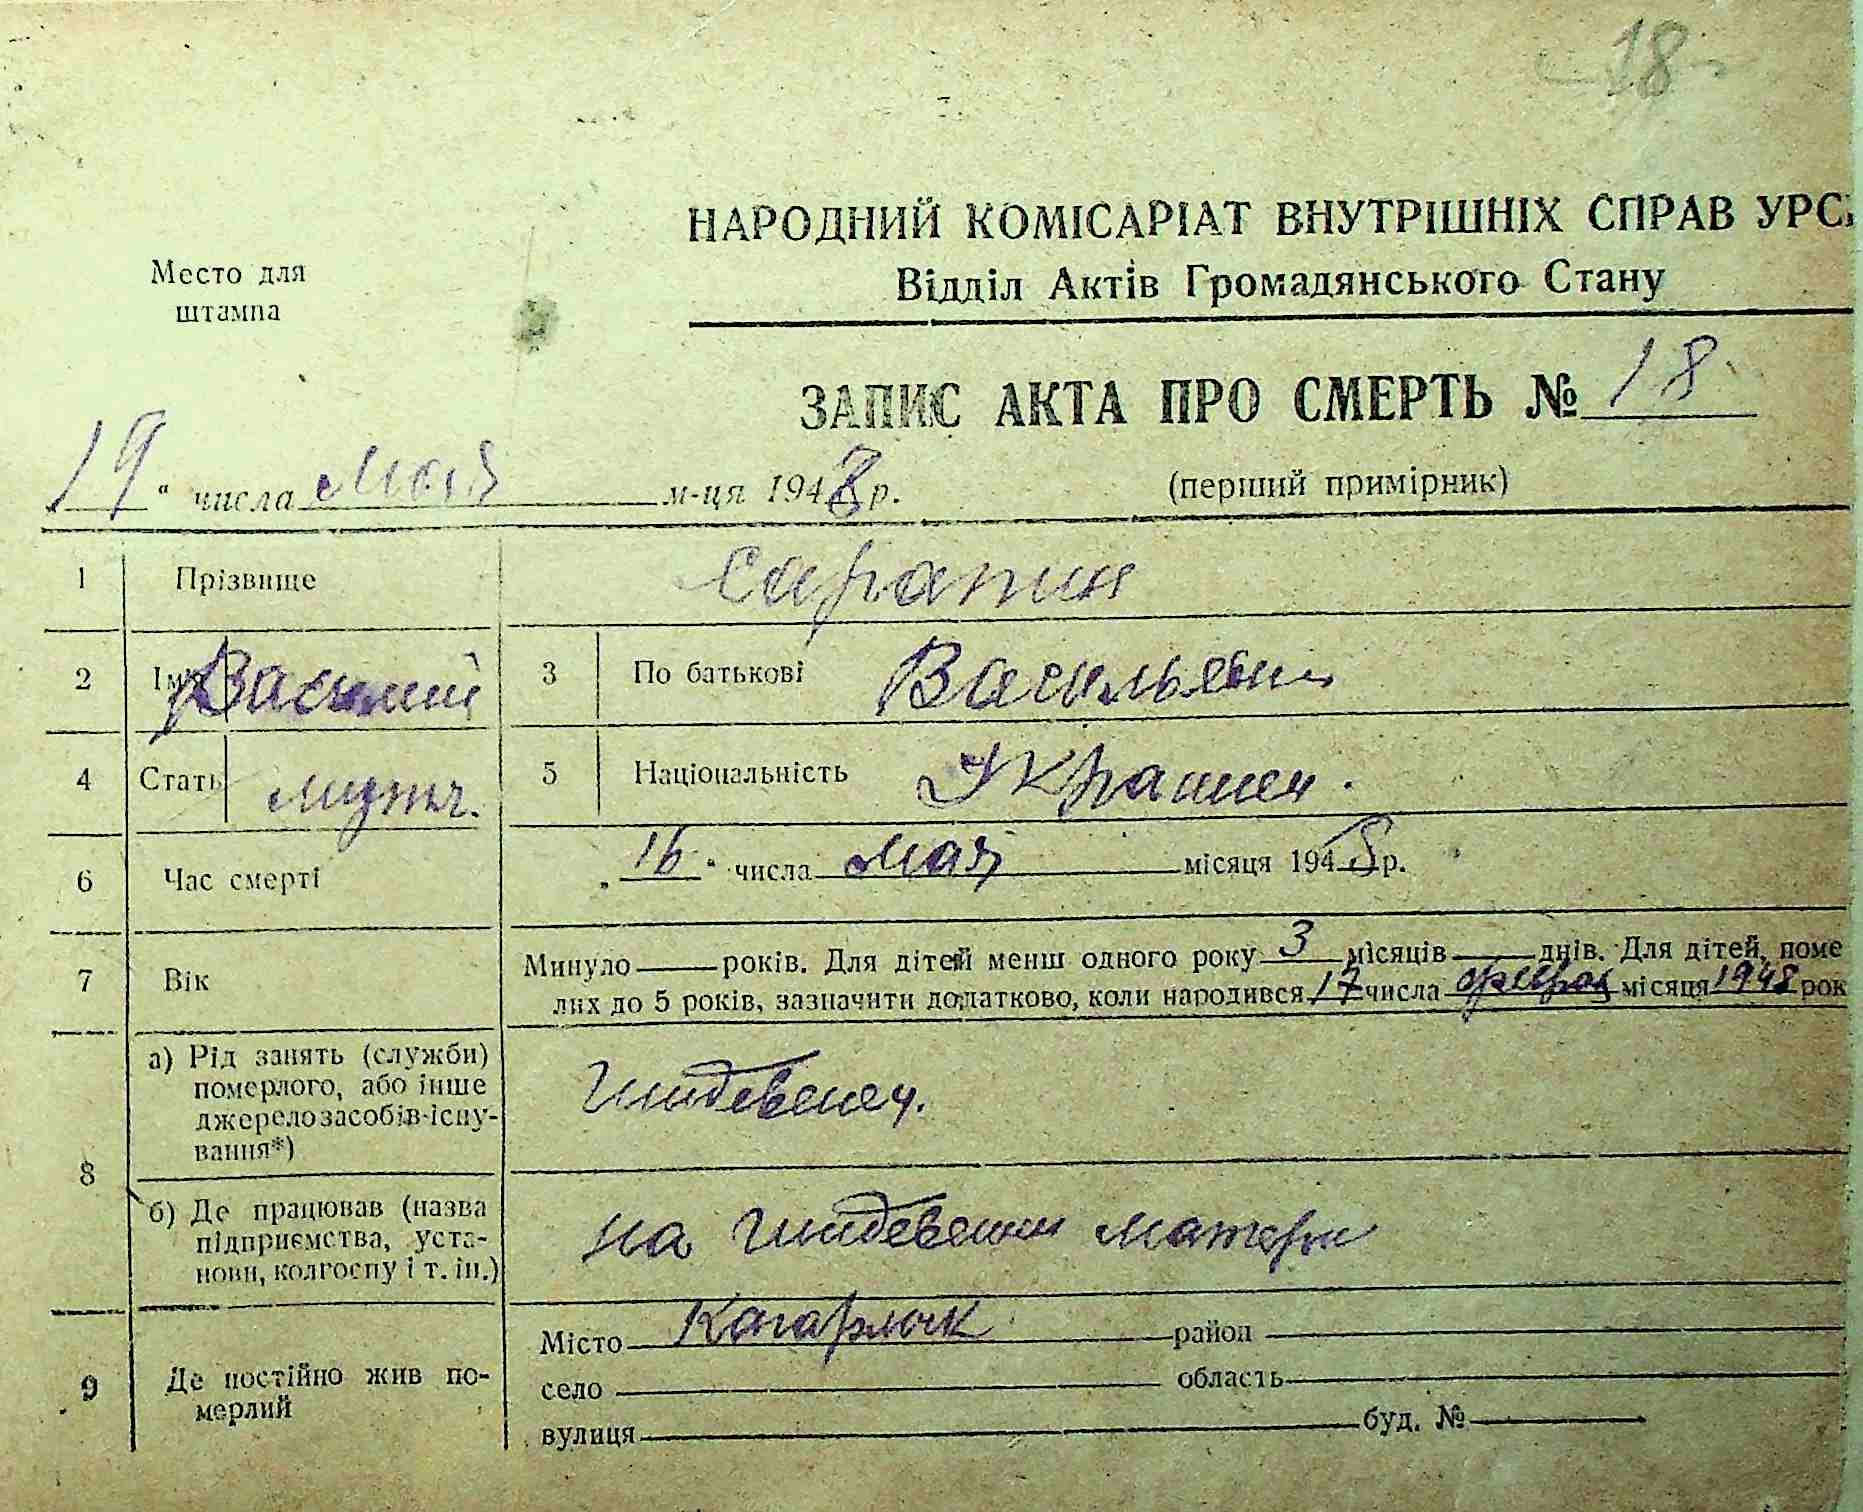 18
НАРОДНИЙ КОМІСАРІАТ ВНУТРІШНІХ СПРАВ УРС
Відділ Актів Громадянського Стану
Место для
штампа
ЗАПИС АКТА ПРО СМЕРТЬ № 18
19 " числа Мая м-ця 1948 р.
(перший примірник)
1 Прізвище Сарапин
2 Ім'я Василий 3 По батькові Васильевич
4 Стать мужч. 5 Національність Украинец.
6 Час смерті „ 16 " числа Мая місяця 1948 р.
7 Вік Минуло рокі­в. Для дітей менш одного року 3 місяців днів. Для дітей, поме
лих до 5 років, зазначити додатково, коли народився 17 числа февраля місяця 1948 рок
8 а) Рід занять (служби)
померлого, або інше
джерело засобів існу-
вання*)
Иждевенец.
б) Де працював (назва
підприємства, уста-
нови, колгоспу і т. ін.)
на иждевении матери
9 Де постійно жив по-
мерлий
Місто Кагарлык район
село область
вулиця буд. №